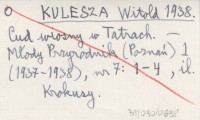 O KULESZA Witold 1938.
Cud wiosny w Tatrach. —
Młody Przyrodnik (Poznań) 1
(1937-1938), nr 7: 1-4, il.
Krokusy.